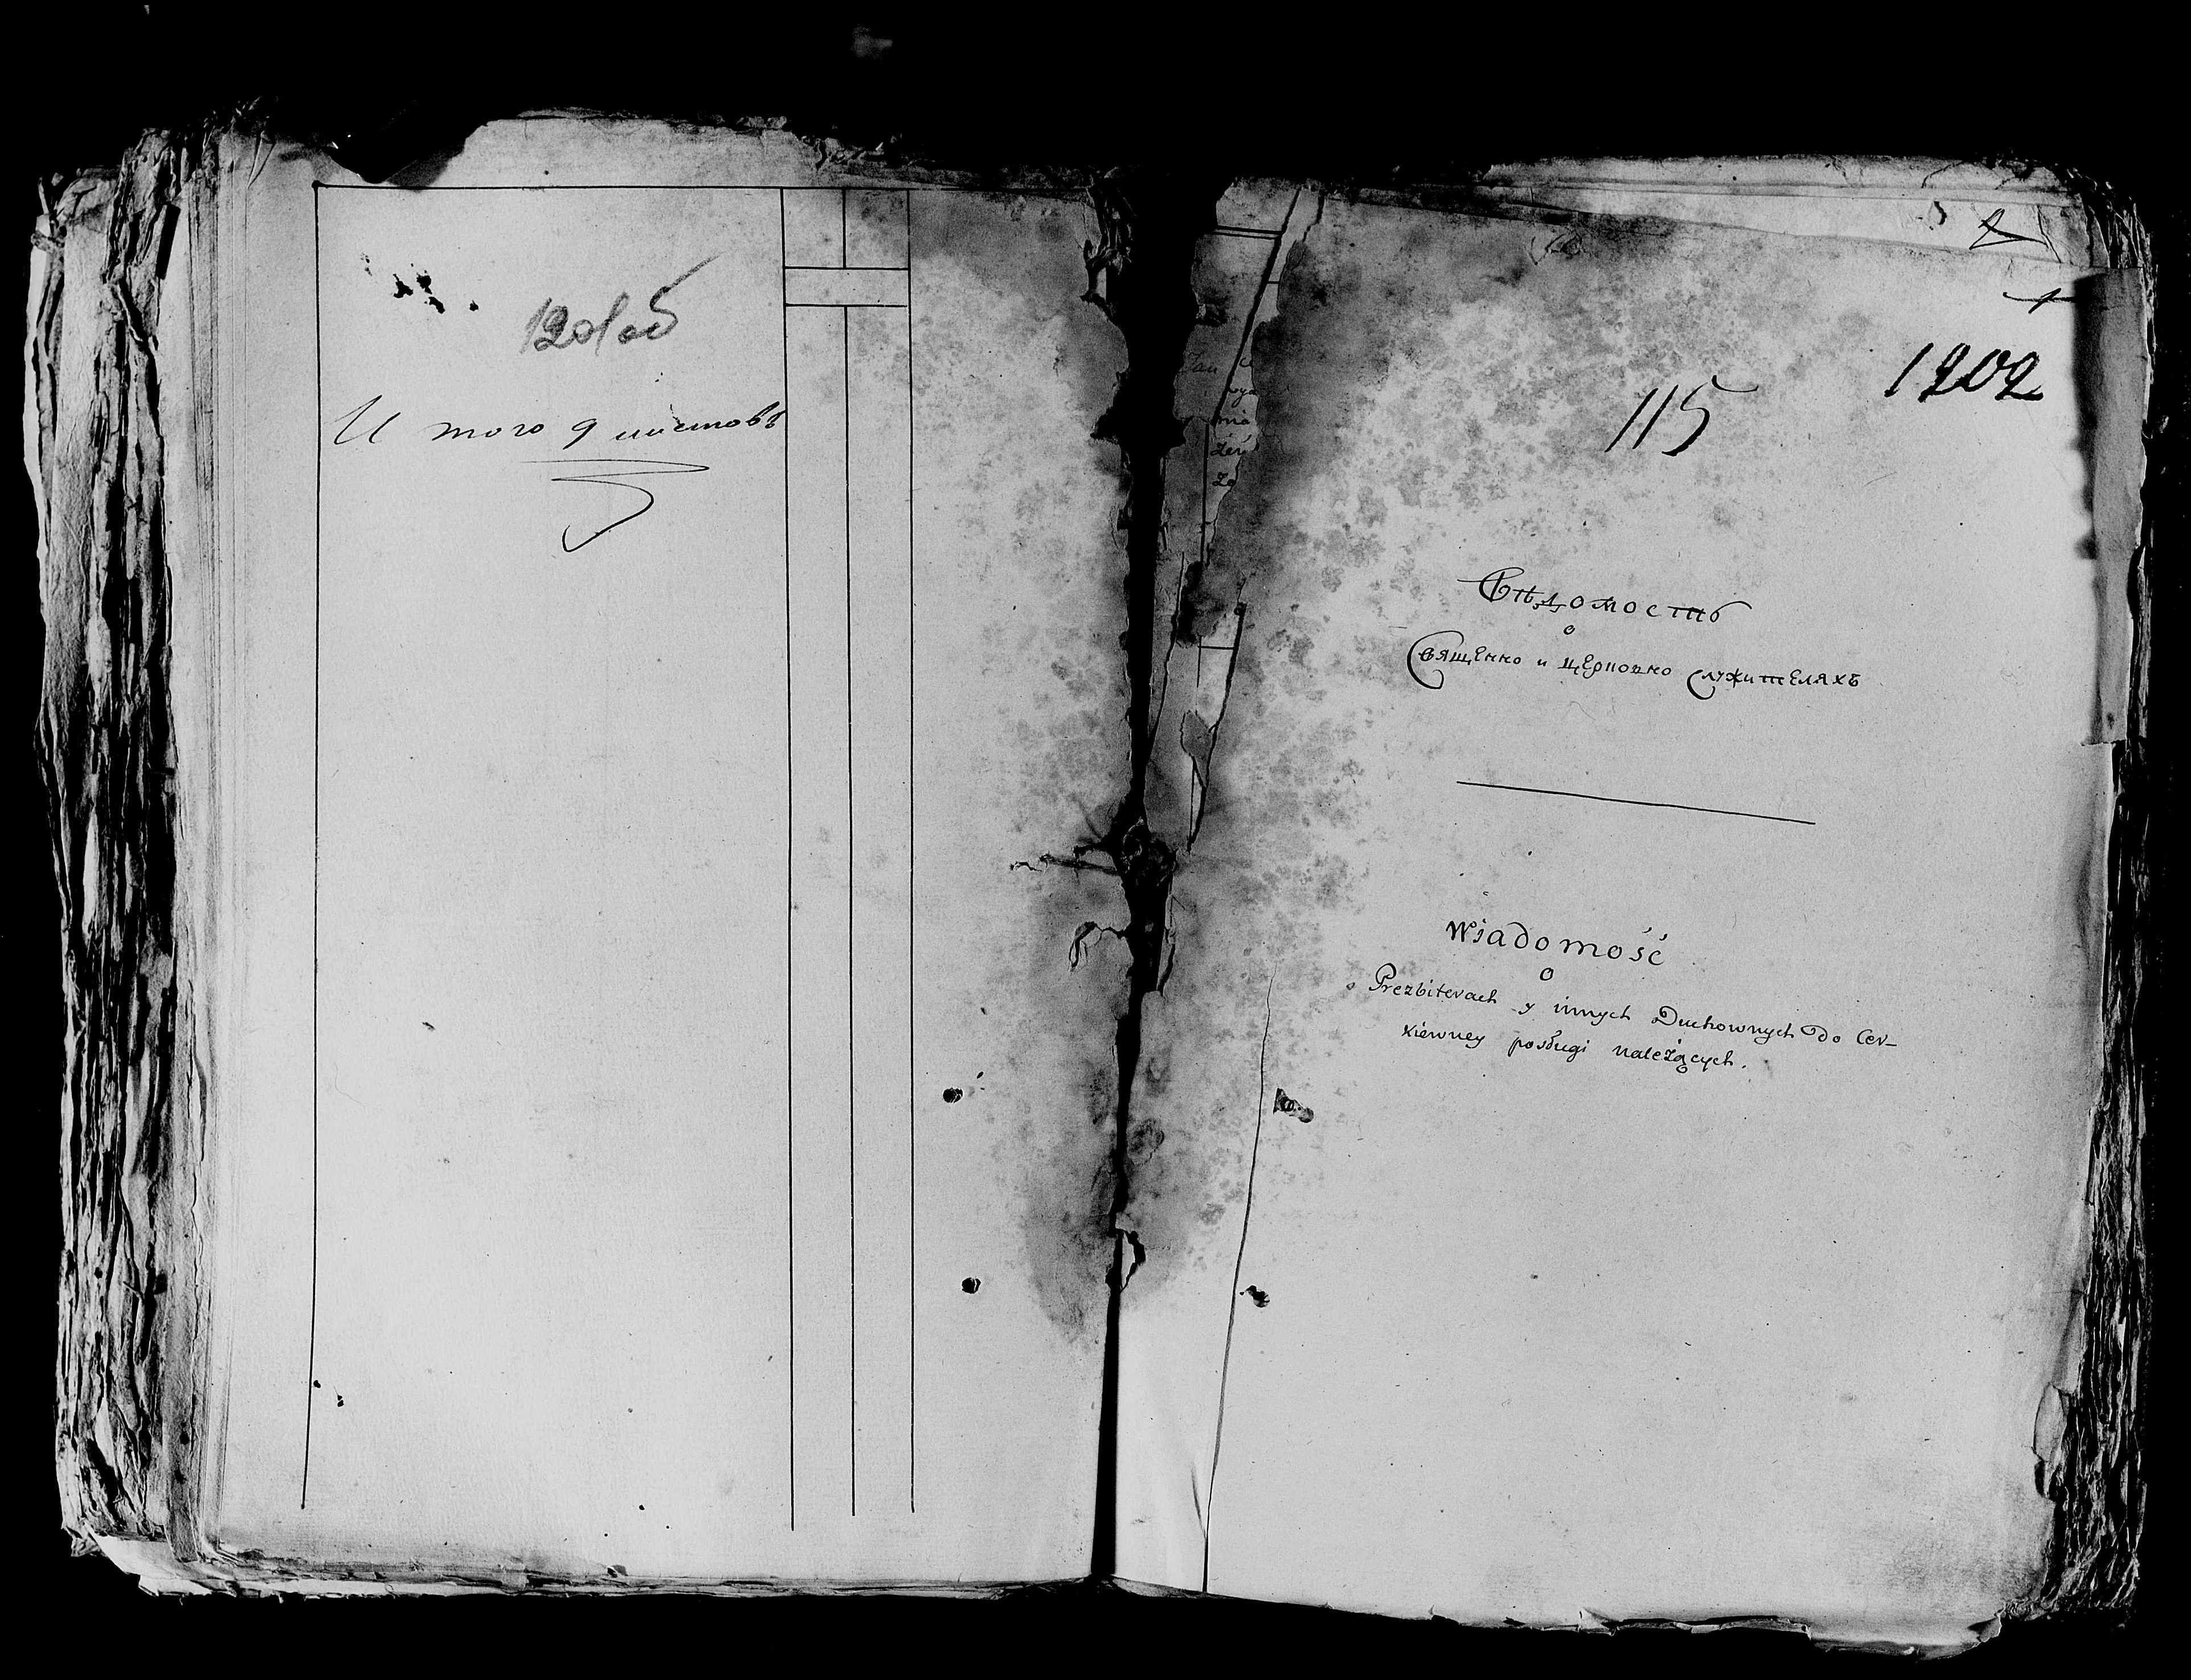 1201об
И того 9 листовъ
1202
115
Вѣдомость
о
Священно и церковно служителяхъ
Wiadomość
o
Prezbiterach y innych Duchownych Do Cer-
kiewney posługi należących.